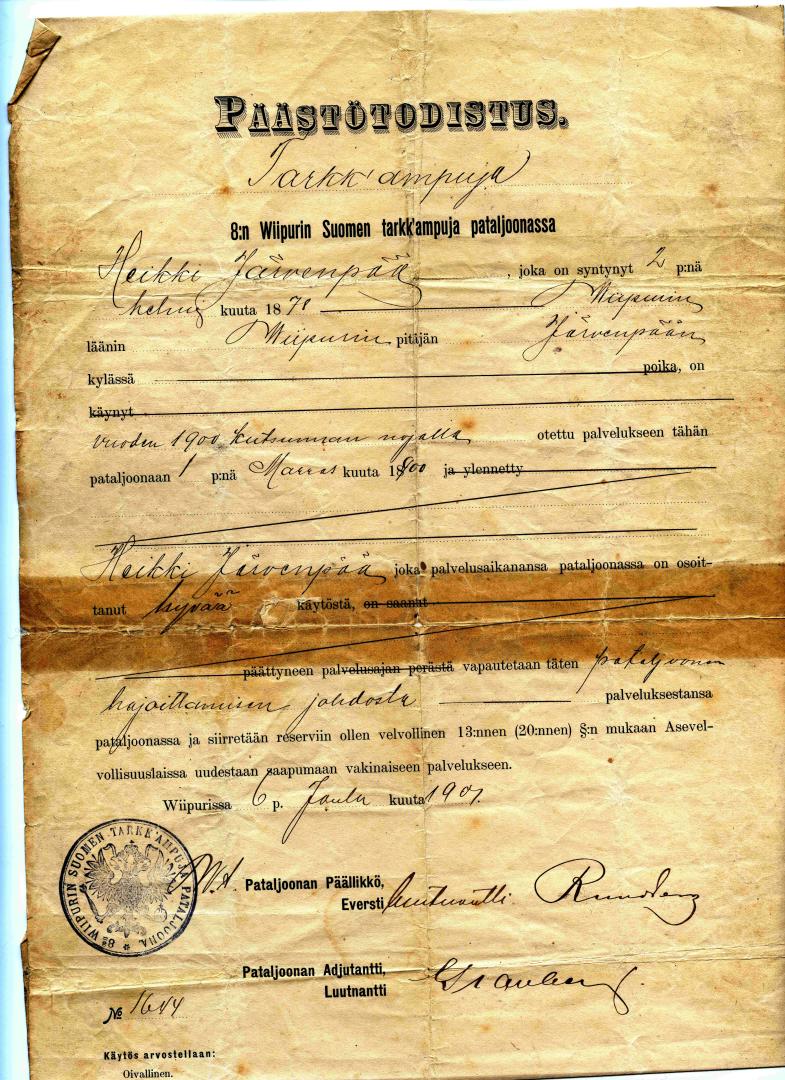 PÄÄSTÖTODISTUS.
Tarkk'ampuja
8:n Wiipurin Suomen tarkk'ampuja pataljoonassa
Heikki Järvenpää, joka on syntynyt 2 p:nä
helmi kuuta 1878 Wiipurin
läänin Wiipurin pitäjän Järvenpään
kylässä poika, on
käynyt
vuoden 1900 kutsunnan nojalla otettu palvelukseen tähän
pataljoonaan 1 p:nä Marras kuuta 1900 ja ylennetty
Heikki Järvenpää joka palvelusaikanansa pataljoonassa on osoit-
tanut hyvää käytöstä, on saanut
päättyneen palvelusajan perästä vapautetaan täten pataljoonan
hajoittamisen johdosta palveluksestansa
pataljoonassa ja siirretään reserviin ollen velvollinen 13:nnen (20:nnen) §:n mukaan Asevel-
vollisuuslaissa uudestaan saapumaan vakinaiseen palvelukseen.
Wiipurissa 6 p. Joulu kuuta 1901.
8S WIIPURIN SUOMEN TARKK'AMPUJA PATALJOONA
Pataljoonan Päällikkö,
Eversti luutnantti
Pataljoonan Adjutantti,
Luutnantti
№ 1644
Käytös arvostellaan:
Oivallinen.